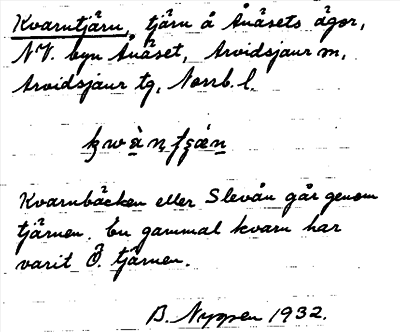 Kvarntjärn, tjärn å Ånäsets ägor,
NV. byn Ånäset, Arvidsjaur sn,
Arvidsjaur tg, Norrb. l.
Kvarnbäcken eller Slevån går genom
tjärnen. En gammal kvarn har
varit Ö. tjärnen.
B. Nygren 1932.